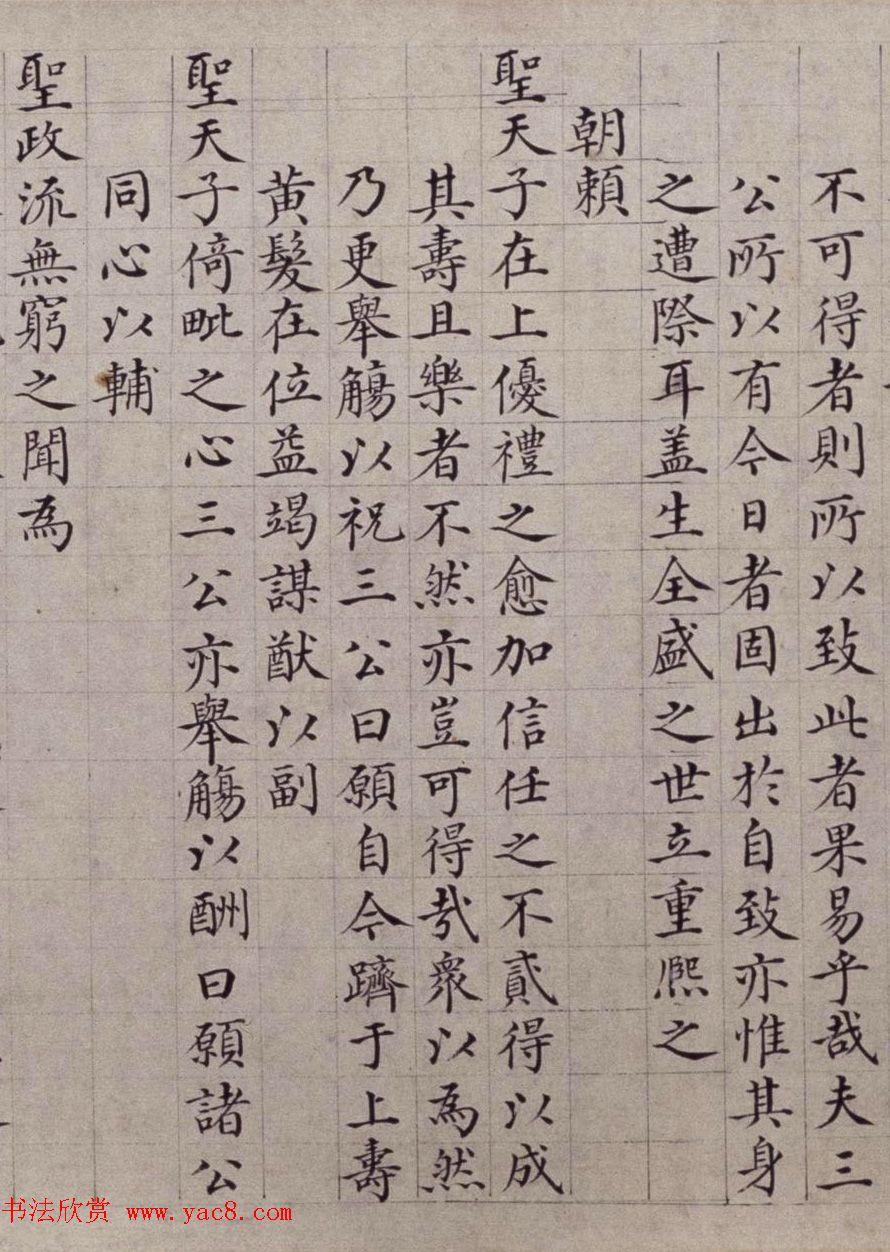 不可得者則所以致此者果易乎哉夫三
公所以有今日者固出於自致亦惟其身
之遭際耳盖生全盛之世立重熈之
朝賴
聖天子在上優禮之愈加信任之不貳得以成
其壽且樂者不然亦豈可得哉衆以為然
乃更舉觴以祝三公曰願自今躋于上壽
黄髮在位益竭謀猷以副
聖天子倚毗之心三公亦舉觴以酬曰願諸公
同心以輔
聖政流無窮之聞為
书法欣赏 www.yac8.com